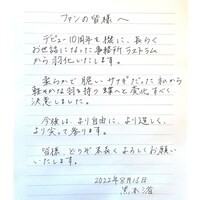 ファンの皆様へ
デビュー10周年を機に、長らく
お世話になった事務所ラストラム
から羽化いたします。
柔らかで脆いサナギだった私から
軽やかな羽を持つ蝶へと変化すべく
決意しました。
今後は、より自由に、より逞しく、
より尖って参ります。
皆様、どうぞ末長くよろしくお願い
いたします。
2022年8月15日
黒木渚